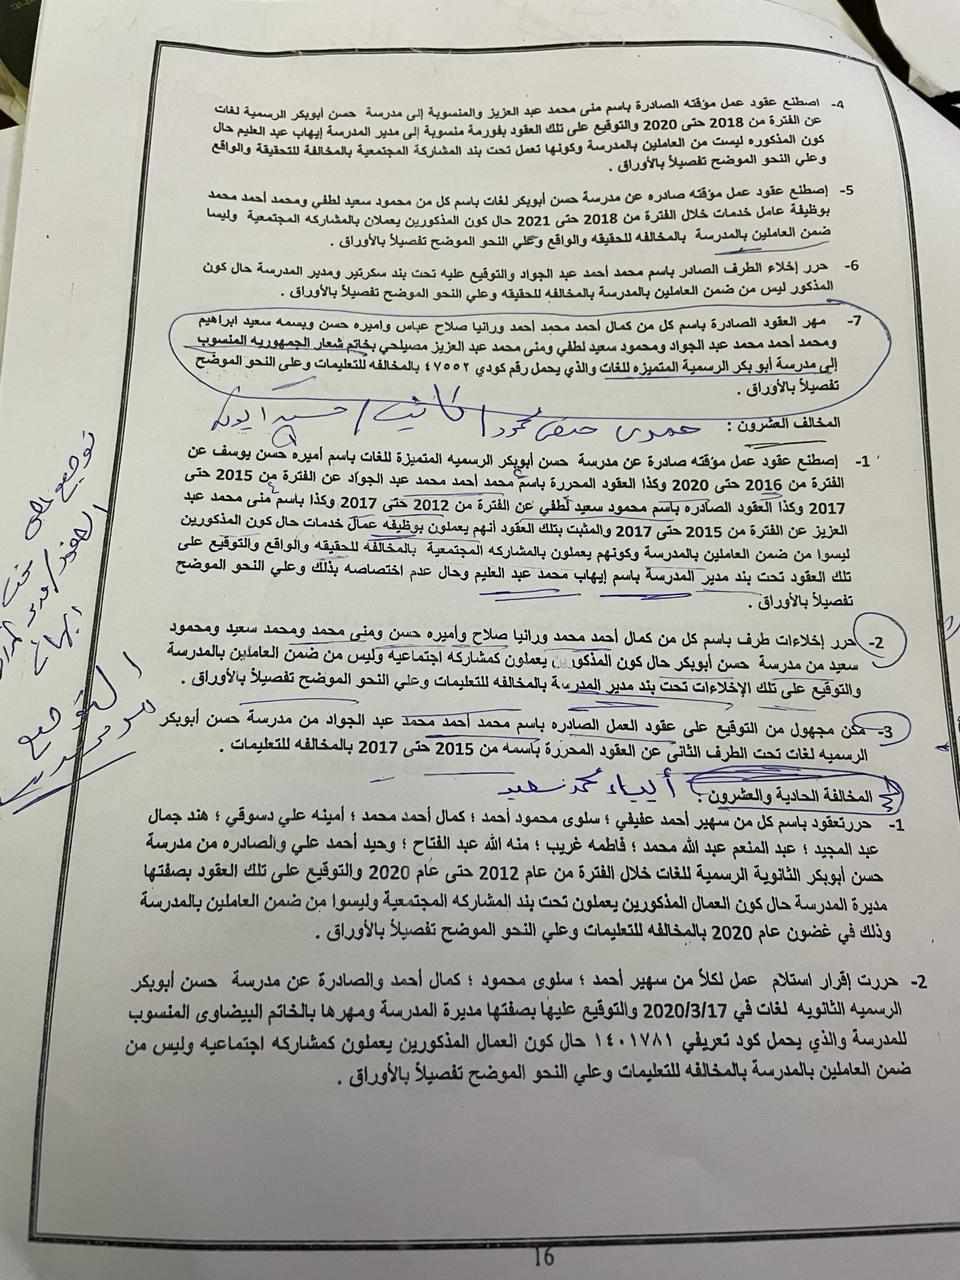 4- اصطنع عقود عمل مؤقته الصادرة باسم منى محمد عبد العزيز والمنسوبة إلى مدرسة حسن أبوبكر الرسمية لغات
عن الفترة من 2018 حتى 2020 والتوقيع على تلك العقود بفورمة منسوبة إلى مدير المدرسة إيهاب عبد العليم حال
كون المذكوره ليست من العاملين بالمدرسة وكونها تعمل تحت بند المشاركة المجتمعية بالمخالفة للتحقيقة والواقع
وعلي النحو الموضح تفصيلاً بالأوراق .
5- إصطنع عقود عمل مؤقته صادره عن مدرسة حسن أبوبكر لغات باسم كل من محمود سعيد لطفي ومحمد أحمد محمد
بوظيفة عامل خدمات خلال الفترة من 2018 حتى 2021 حال كون المذكورين يعملان بالمشاركه المجتمعية وليسا
ضمن العاملين بالمدرسة بالمخالفه للحقيقه والواقع وعلي النحو الموضح تفصيلاً بالأوراق .
6- حرر إخلاء الطرف الصادر باسم محمد أحمد عبد الجواد والتوقيع عليه تحت بند سكرتير ومدير المدرسة حال كون
المذكور ليس من ضمن العاملين بالمدرسة بالمخالفه للحقيقه وعلي النحو الموضح تفصيلاً بالأوراق .
7- مهر العقود الصادرة باسم كل من كمال أحمد محمد أحمد ورانيا صلاح عباس واميره حسن وبسمه سعيد ابراهيم
ومحمد أحمد محمد عبد الجواد ومحمود سعيد لطفي ومنى محمد عبد العزيز مصيلحي بخاتم شعار الجمهوريه المنسوب
إلى مدرسة أبو بكر الرسمية المتميزه للغات والذي يحمل رقم كودي ٤٧٥٥٢ بالمخالفه للتعليمات وعلي النحو الموضح
تفصيلاً بالأوراق .
المخالف العشرون : حمدى حنفى محمود / كاتب / حسن ابوبكر
1- إصطنع عقود عمل مؤقته صادرة عن مدرسة حسن أبوبكر الرسميه المتميزة للغات باسم أميره حسن يوسف عن
الفترة من 2016 حتى 2020 وكذا العقود المحررة باسم محمد أحمد محمد عبد الجواد عن الفترة من 2015 حتى
2017 وكذا العقود الصادره باسم محمود سعيد لطفي عن الفترة من 2012 حتى 2017 وكذا باسم منى محمد عبد
العزيز عن الفترة من 2015 حتى 2017 والمثبت بتلك العقود أنهم يعملون بوظيفه عمال خدمات حال كون المذكورين
ليسوا من ضمن العاملين بالمدرسة وكونهم يعملون بالمشاركه المجتمعية بالمخالفه للحقيقه والواقع والتوقيع على
تلك العقود تحت بند مدير المدرسة باسم إيهاب محمد عبد العليم وحال عدم اختصاصه بذلك وعلي النحو الموضح
تفصيلاً بالأوراق .
2- حرر إخلاءات طرف باسم كل من كمال أحمد محمد ورانيا صلاح وأميره حسن ومنى محمد ومحمد سعيد ومحمود
سعيد من مدرسة حسن أبوبكر حال كون المذكورين يعملون كمشاركه اجتماعيه وليس من ضمن العاملين بالمدرسة
والتوقيع على تلك الإخلاءات تحت بند مدير المدرسة بالمخالفه للتعليمات وعلي النحو الموضح تفصيلاً بالأوراق .
3- مكن مجهول من التوقيع على عقود العمل الصادره باسم محمد أحمد محمد عبد الجواد من مدرسة حسن أبوبكر
الرسميه لغات تحت الطرف الثاني عن العقود المحررة باسمه من 2015 حتى 2017 بالمخالفه للتعليمات .
المخالفة الحادية والعشرون : ألمياء محمد سعيد
1- حررتعقود باسم كل من سهير أحمد عفيفي ؛ سلوى محمود أحمد ؛ كمال أحمد محمد ؛ أمينه علي دسوقي ؛ هند جمال
عبد المجيد ؛ عبد المنعم عبد الله محمد ؛ فاطمه غريب ؛ منه الله عبد الفتاح ؛ وحيد أحمد علي والصادره من مدرسة
حسن أبوبكر الثانوية الرسمية للغات خلال الفترة من عام 2012 حتى عام 2020 والتوقيع على تلك العقود بصفتها
مديرة المدرسة حال كون العمال المذكورين يعملون تحت بند المشاركه المجتمعية وليسوا من ضمن العاملين بالمدرسة
وذلك في غضون عام 2020 بالمخالفه للتعليمات وعلي النحو الموضح تفصيلاً بالأوراق .
2- حررت إقرار استلام عمل لكلاً من سهير أحمد ؛ سلوى محمود ؛ كمال أحمد والصادرة عن مدرسة حسن أبوبكر
الرسميه الثانويه لغات في 2020/3/17 والتوقيع عليها بصفتها مديرة المدرسة ومهرها بالخاتم البيضاوى المنسوب
للمدرسة والذي يحمل كود تعريفي ١٤٠١٧٨١ حال كون العمال المذكورين يعملون كمشاركه اجتماعيه وليس من
ضمن العاملين بالمدرسة بالمخالفه للتعليمات وعلي النحو الموضح تفصيلاً بالأوراق .
16